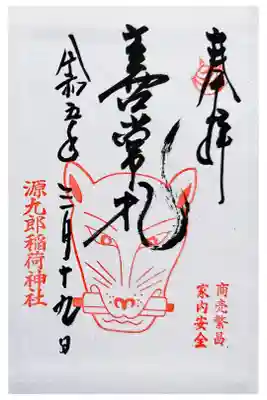 奉拝
常
令和五年三月十九日
源九郎稲荷神社
商売繁昌
家内安全